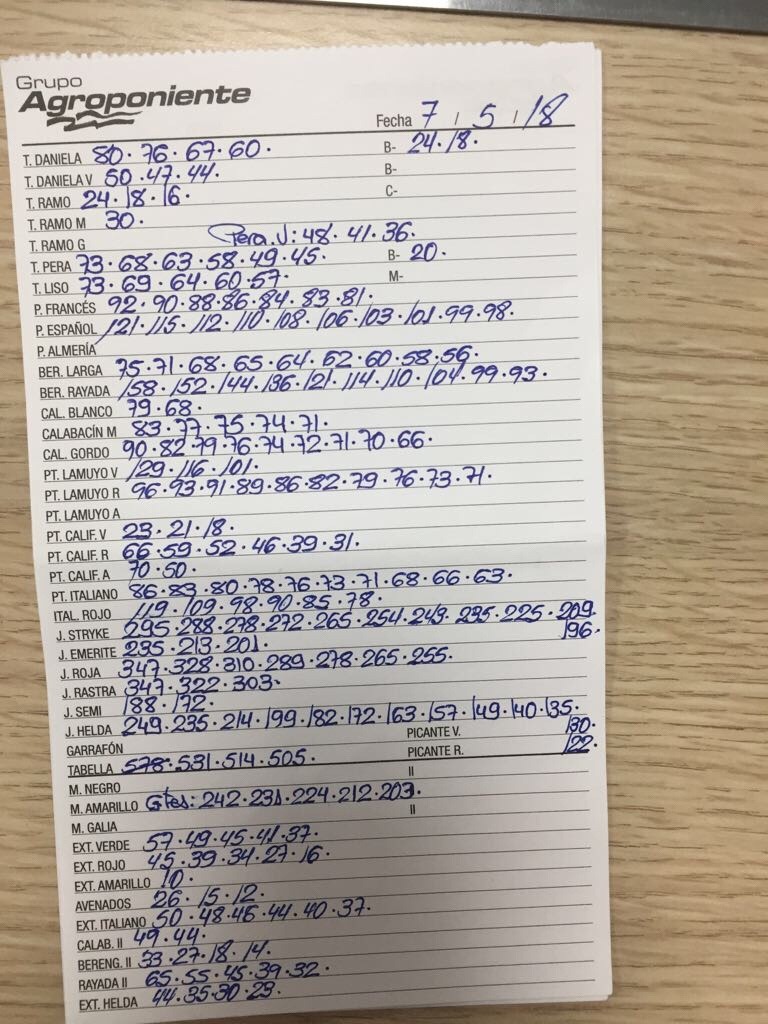 Grupo
Agroponiente
Fecha 7 / 5 / 18
T. DANIELA 80. 76. 67. 60. B- 24. 18.
T. DANIELA V 50. 47. 44. B-
T. RAMO 24. 18. 16. C-
T. RAMO M 30.
T. RAMO G Pera. V: 48. 41. 36.
T. PERA 73. 68. 63. 58. 49. 45. B- 20.
T. LISO 73. 69. 64. 60. 57. M-
P. FRANCÉS 92. 90. 88. 86. 84. 83. 81.
P. ESPAÑOL 121. 115. 112. 110. 108. 106. 103. 101. 99. 98.
P. ALMERÍA
BER. LARGA 75. 71. 68. 65. 64. 62. 60. 58. 56.
BER. RAYADA 158. 152. 144. 136. 121. 114. 110. 104. 99. 93.
CAL. BLANCO 79. 68.
CALABACÍN M 83. 77. 75. 74. 71.
CAL. GORDO 90. 82. 79. 76. 74. 72. 71. 70. 66.
PT. LAMUYO V 129. 116. 101.
PT. LAMUYO R 96. 93. 91. 89. 86. 82. 79. 76. 73. 71.
PT. LAMUYO A
PT. CALIF. V 23. 21. 18.
PT. CALIF. R 66. 59. 52. 46. 39. 31.
PT. CALIF. A 70. 50.
PT. ITALIANO 86. 83. 80. 78. 76. 73. 71. 68. 66. 63.
ITAL. ROJO 119. 109. 98. 90. 85. 78.
J. STRYKE 295. 288. 278. 272. 265. 254. 249. 235. 225. 209.
196.
J. EMERITE 235. 213. 201.
J. ROJA 347. 328. 310. 289. 278. 265. 255.
J. RASTRA 347. 322. 303.
J. SEMI 188. 172.
J. HELDA 249. 235. 214. 199. 182. 172. 163. 157. 149. 140. 135.
GARRAFÓN PICANTE V. 130.
TABELLA 578. 531. 514. 505. PICANTE R. 122.
M. NEGRO II
M. AMARILLO Gtes: 242. 231. 224. 212. 203. II
M. GALIA
EXT. VERDE 57. 49. 45. 41. 37.
EXT. ROJO 45. 39. 34. 27. 16.
EXT. AMARILLO 10.
AVENADOS 26. 15. 12.
EXT. ITALIANO 50. 48. 46. 44. 40. 37.
CALAB. II 49. 44.
BERENG. II 33. 27. 18. 14.
RAYADA II 65. 55. 45. 39. 32.
EXT. HELDA 44. 35. 30. 23.